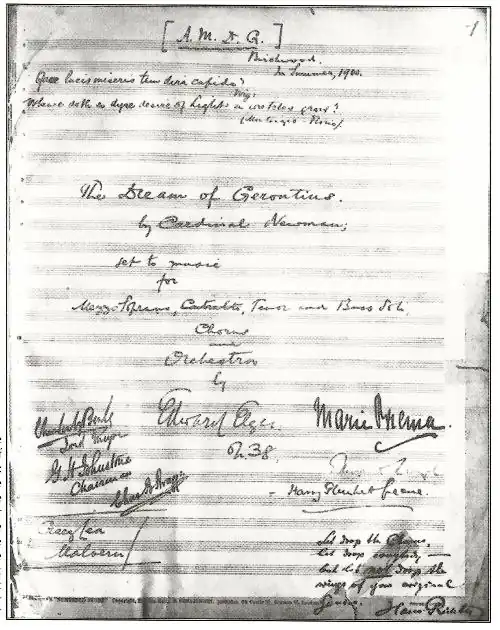 1
[ A. M. D. G. ]
Birchwood.
In Summer, 1900.
Quae lucis miseris tam dira cupido?
Virg:
Whence doth so dyre desire of Light on wretches grow?
(Montaigne - Florio).
The Dream of Gerontius.
by Cardinal Newman;
set to music
for
Mezzo-Soprano, Contralto, Tenor and Bass Soli,
Chorus
and
Orchestra
by
Edward Elgar.
Op. 38.
Lord Mayor
G. H. Johnstone
Chairman
Craeg Lea
Malvern
Marie Brema.
Harry Plunket Greene.
let drop the Chorus,
let drop everybody —
but let not drop the
wings of your original
genius.
Hans Richter